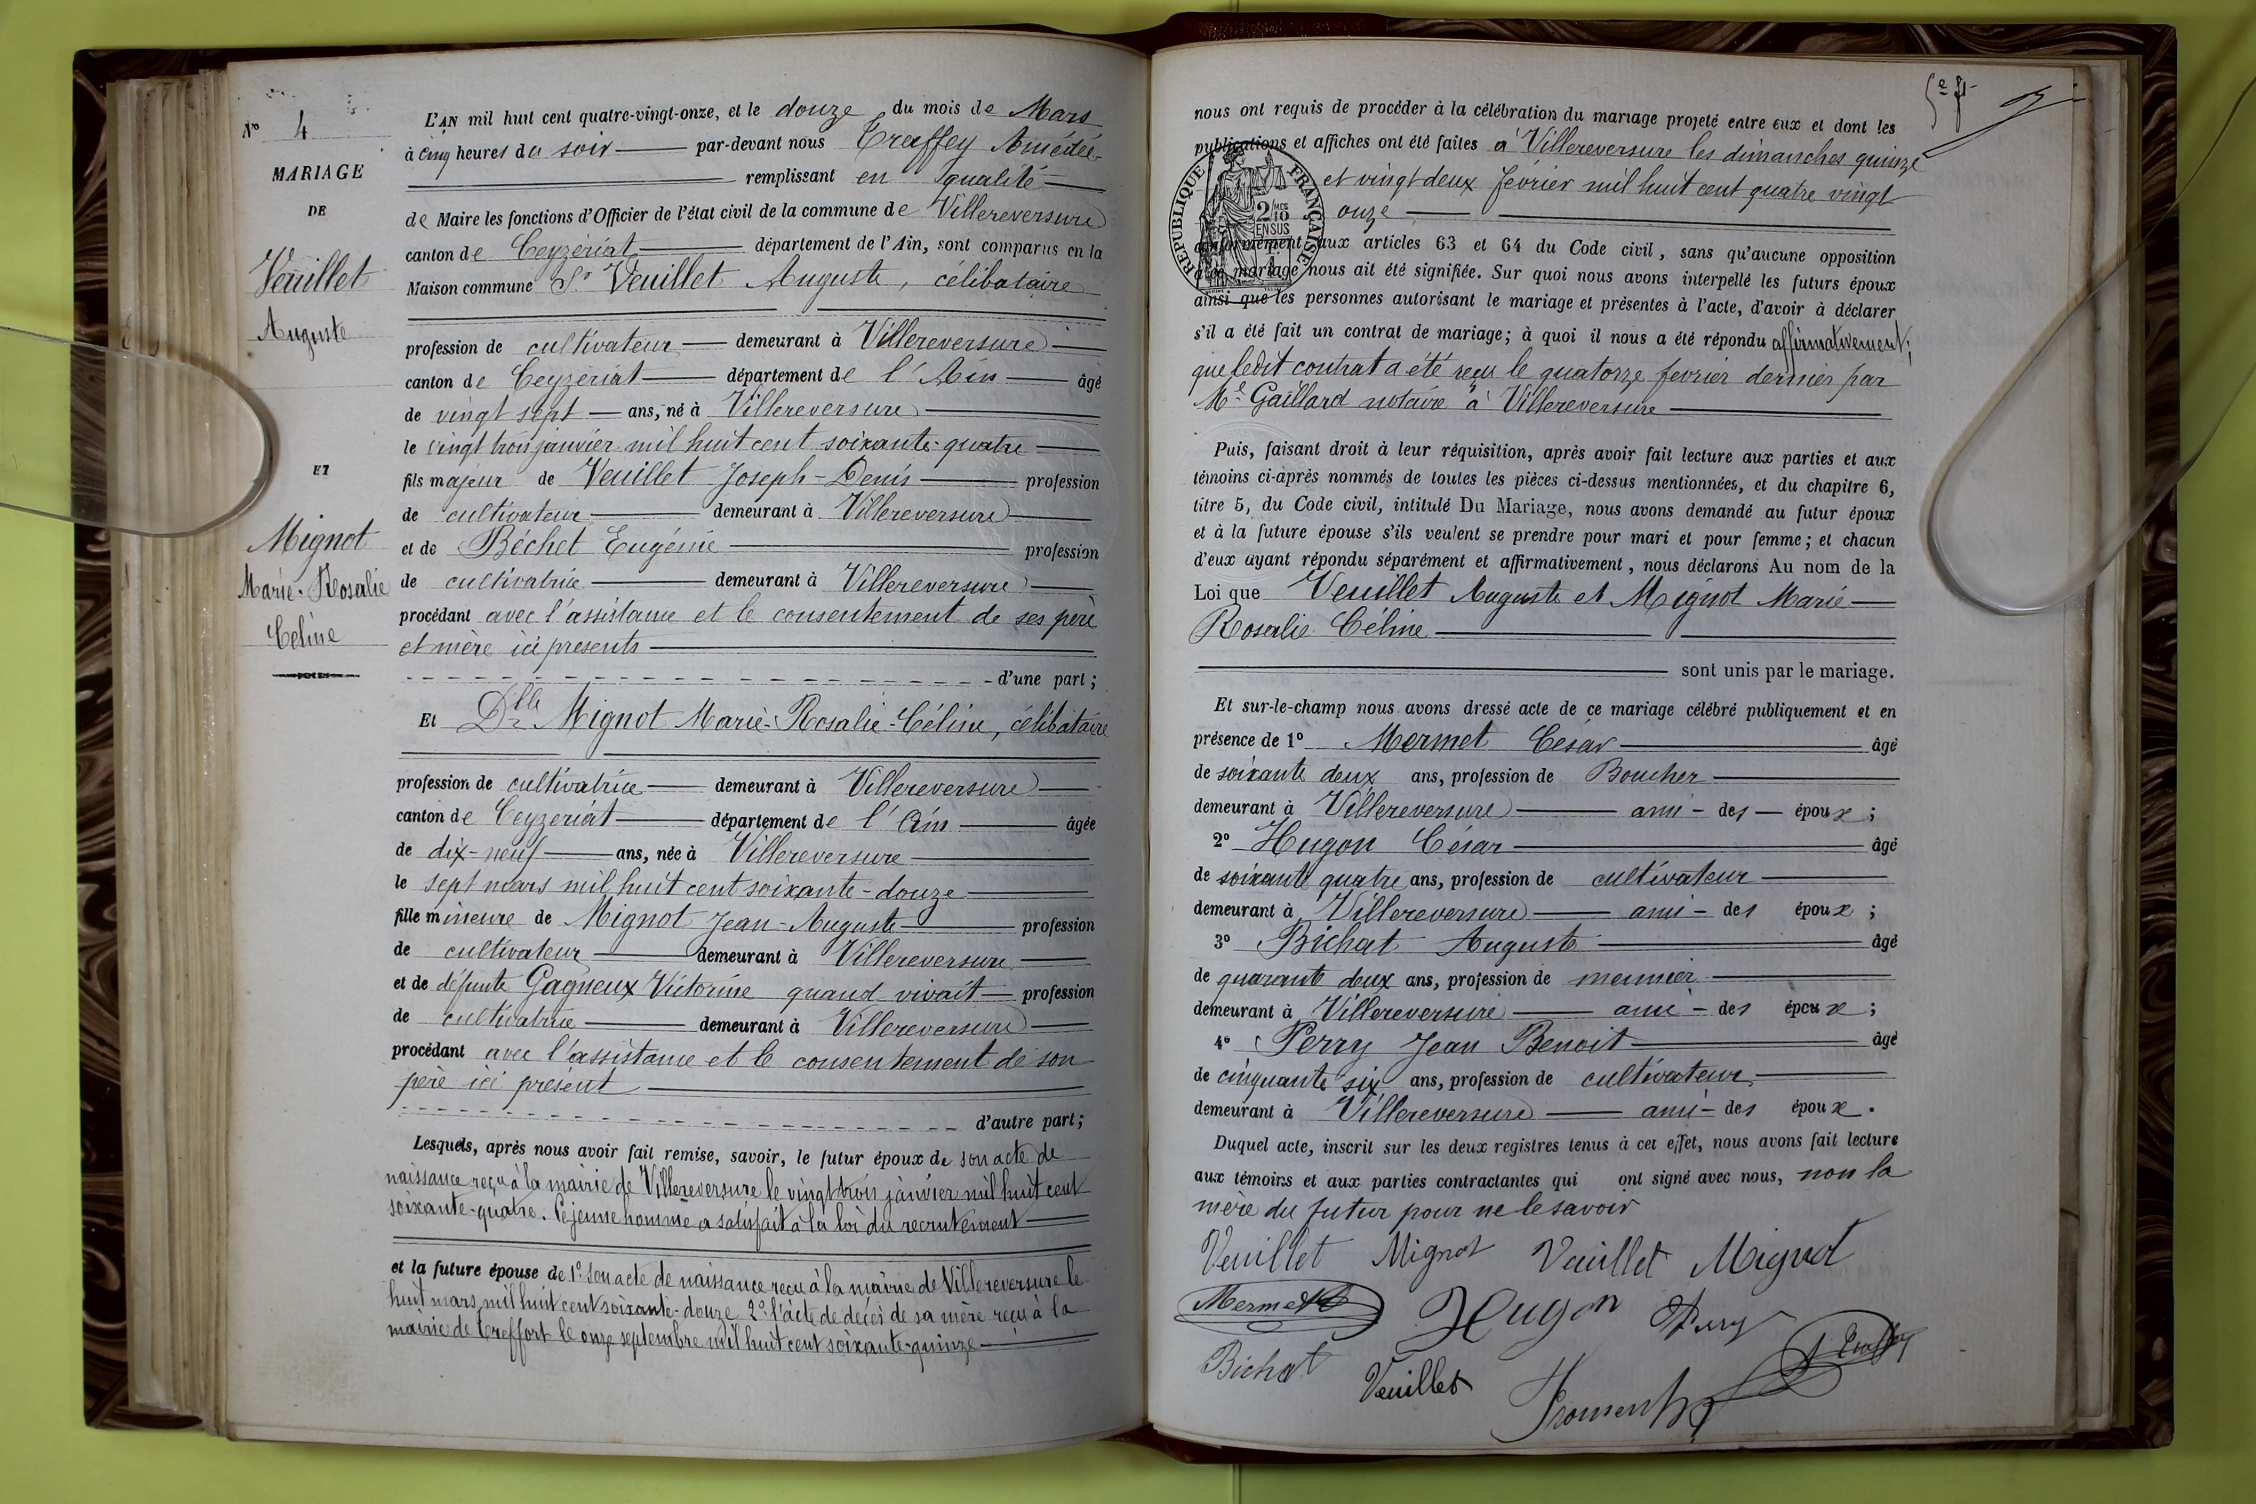 N° 4
MARIAGE
DE
Veuillet
Auguste
ET
Mignot
Marie-Rosalie
Céline
L'AN mil huit cent quatre-vingt-onze, et le douze du mois de Mars
à cinq heures du soir par-devant nous Treffey Amédée
remplissant en qualité
de Maire les fonctions d'Officier de l'état civil de la commune de Villereversure
canton de Ceyzériat département de l'Ain, sont comparus en la
Maison commune Sr Veuillet Auguste, célibataire
profession de cultivateur demeurant à Villereversure
canton de Ceyzériat département de l'Ain âgé
de vingt sept ans, né à Villereversure
le vingt trois janvier mil huit cent soixante-quatre
fils majeur de Veuillet Joseph-Denis profession
de cultivateur demeurant à Villereversure
et de Béchet Eugénie profession
de cultivatrice demeurant à Villereversure
procédant avec l'assistance et le consentement de ses père
et mère ici présents
d'une part ;
Et Dlle Mignot Marie-Rosalie-Céline, célibataire
profession de cultivatrice demeurant à Villereversure
canton de Ceyzeriat département de l'Ain âgée
de dix-neuf ans, née à Villereversure
le sept mars mil huit cent soixante-douze
fille mineure de Mignot Jean-Auguste profession
de cultivateur demeurant à Villereversure
et de défunte Gagneux Victorine quand vivait profession
de cultivatrice demeurant à Villereversure
procédant avec l'assistance et le consentement de son
père ici présent
d'autre part ;
Lesquels, après nous avoir fait remise, savoir, le futur époux de son acte de
naissance reçu à la mairie de Villereversure le vingt trois janvier mil huit cent
soixante-quatre. Ce jeune homme a satisfait à la loi du recrutement
et la future épouse de 1° son acte de naissance reçu à la mairie de Villereversure le
huit mars mil huit cent soixante-douze 2° l'acte de décès de sa mère reçu à la
mairie de Treffort le onze septembre mil huit cent soixante-quinze
5e f
nous ont requis de procéder à la célébration du mariage projeté entre eux et dont les
publications et affiches ont été faites à Villereversure les dimanches quinze
et vingt deux février mil huit cent quatre vingt
onze
RÉPUBLIQUE FRANÇAISE
2 MES 10 EN SUS
conformément aux articles 63 et 64 du Code civil, sans qu'aucune opposition
audit mariage nous ait été signifiée. Sur quoi nous avons interpellé les futurs époux
ainsi que les personnes autorisant le mariage et présentes à l'acte, d'avoir à déclarer
s'il a été fait un contrat de mariage; à quoi il nous a été répondu affirmativement;
que ledit contrat a été reçu le quatorze février dernier par
Me Gaillard notaire à Villereversure
Puis, faisant droit à leur réquisition, après avoir fait lecture aux parties et aux
témoins ci-après nommés de toutes les pièces ci-dessus mentionnées, et du chapitre 6,
titre 5, du Code civil, intitulé Du Mariage, nous avons demandé au futur époux
et à la future épouse s'ils veulent se prendre pour mari et pour femme ; et chacun
d'eux ayant répondu séparément et affirmativement, nous déclarons Au nom de la
Loi que Veuillet Auguste et Mignot Marie
Rosalie Céline
sont unis par le mariage.
Et sur-le-champ nous avons dressé acte de ce mariage célébré publiquement et en
présence de 1° Mermet César âgé
de soixante deux ans, profession de Boucher
demeurant à Villereversure ami des époux ;
2° Hugon César âgé
de soixante quatre ans, profession de cultivateur
demeurant à Villereversure ami des époux ;
3° Bichat Auguste âgé
de quarante deux ans, profession de meunier
demeurant à Villereversure ami des époux ;
4° Perry Jean Benoit âgé
de cinquante six ans, profession de cultivateur
demeurant à Villereversure ami des époux.
Duquel acte, inscrit sur les deux registres tenus à cet effet, nous avons fait lecture
aux témoins et aux parties contractantes qui ont signé avec nous, non la
mère du futur pour ne le savoir
Veuillet Mignot Veuillet Mignot
Mermet Hugon Perry
Bichat Veuillet Froment A Treffey